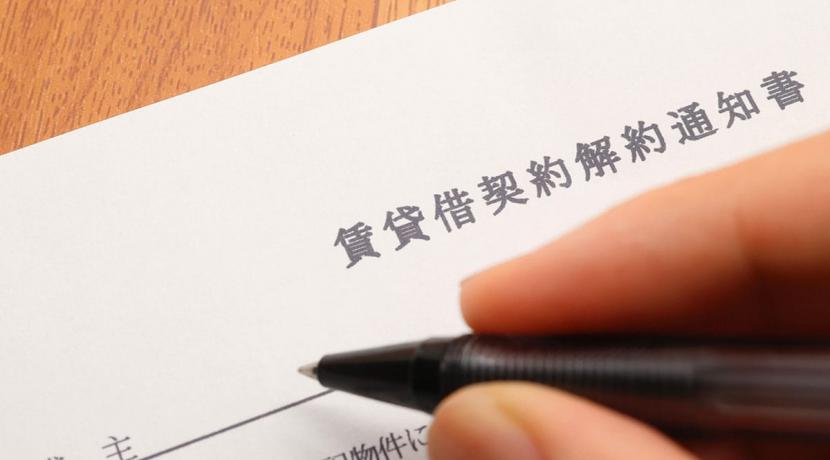 賃貸借契約解約通知書
主
物件に